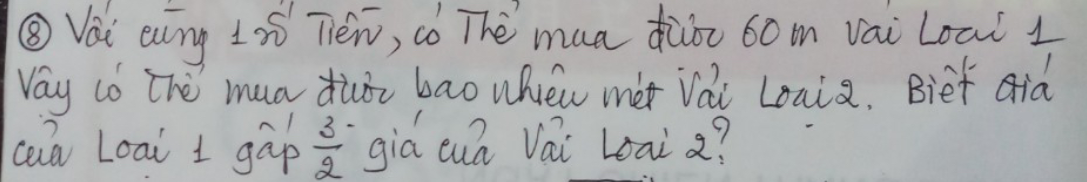 ⑧ Với cùng 1 số Tiền, có Thể mua được 60 m vải Loại 1
Vậy có Thể mua được bao nhiêu mét Vải Loại 2. Biết Giá
của Loại 1 gấp 3/2 giá của Vải Loại 2?